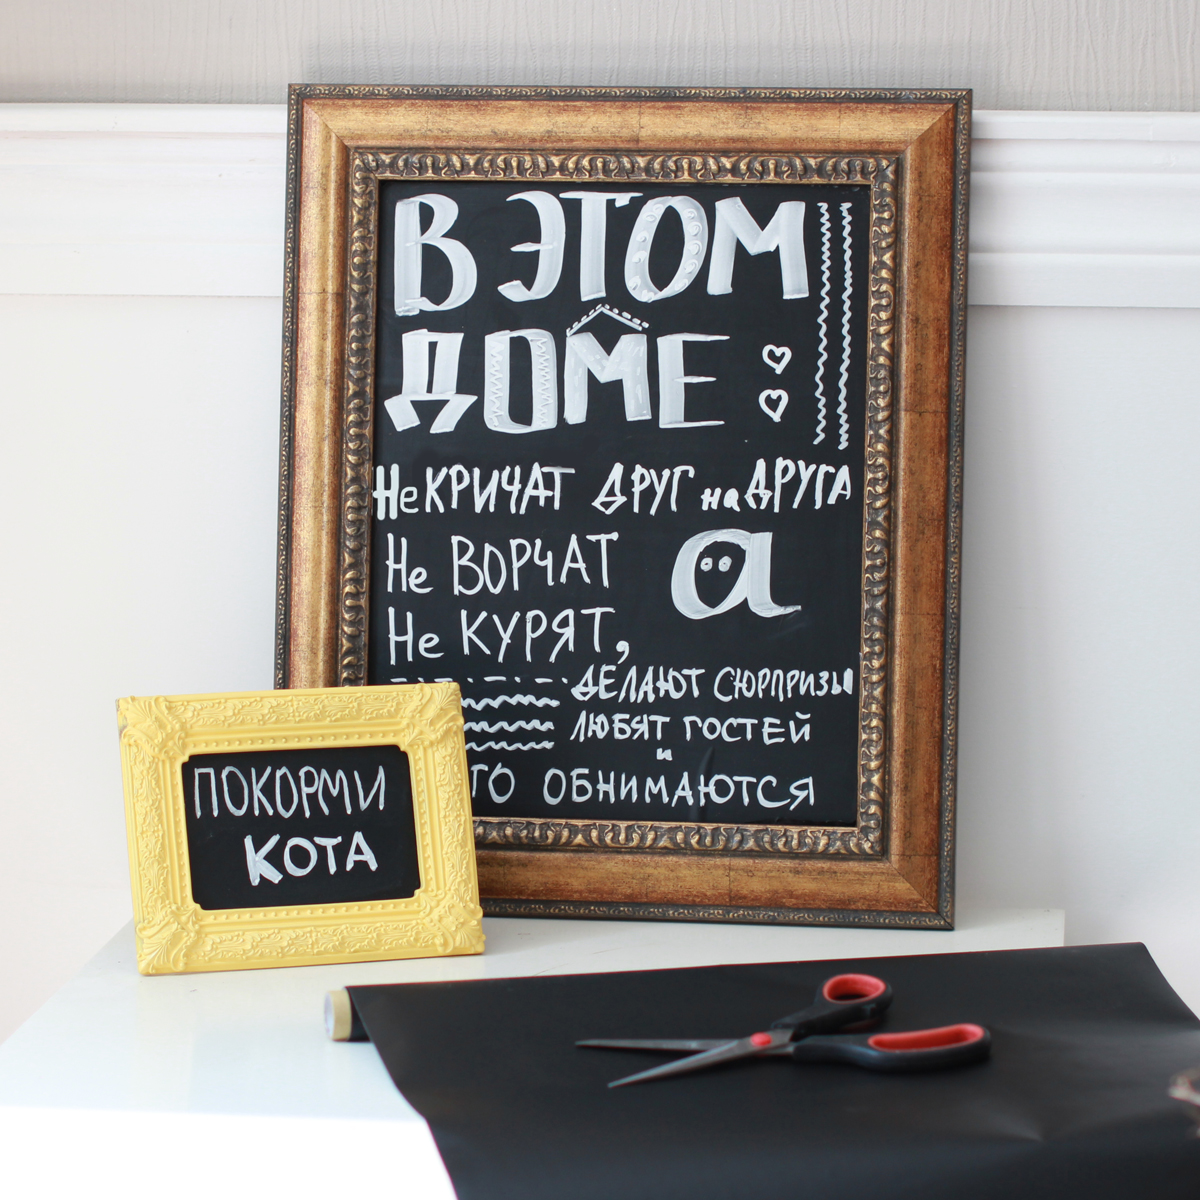 В ЭТОМ
ДОМЕ
Не КРИЧАТ ДРУГ на ДРУГА
Не ВОРЧАТ
Не КУРЯТ,
а
ДЕЛАЮТ СЮРПРИЗЫ
ЛЮБЯТ ГОСТЕЙ
и
ОБНИМАЮТСЯ
ПОКОРМИ
КОТА